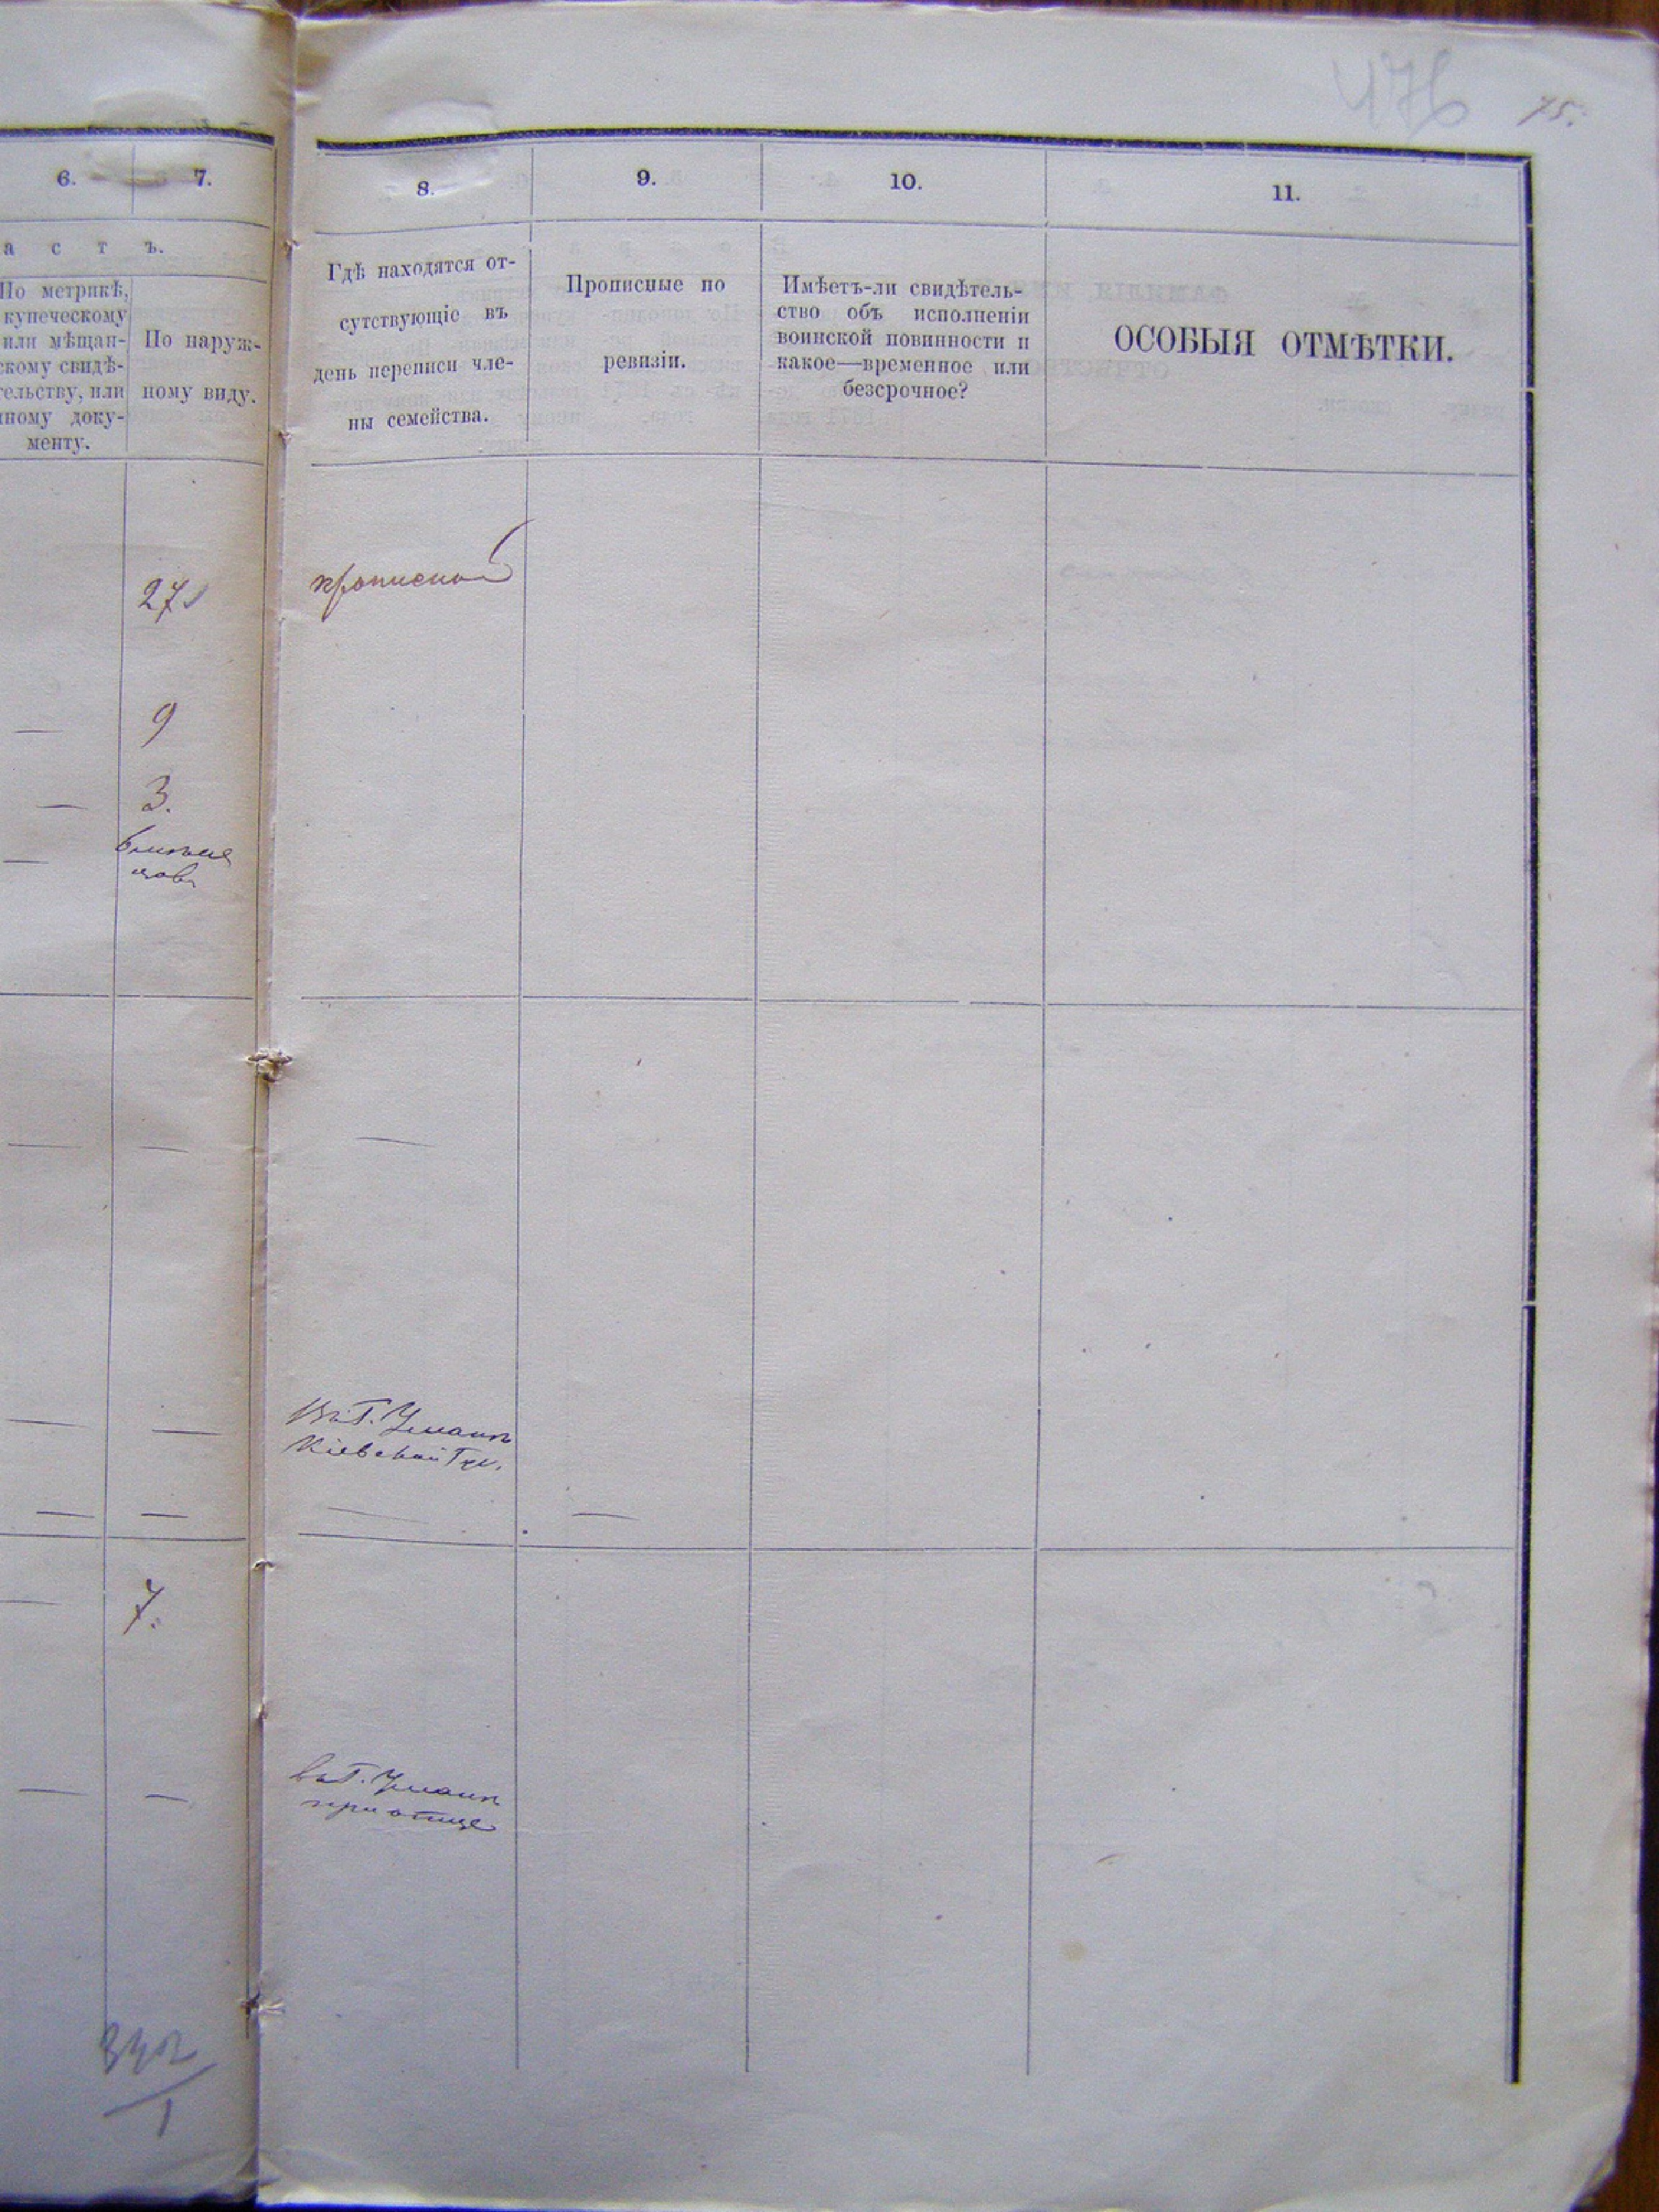 476 75.
6. 7.
а с т ъ.
По метрикѣ,
купеческому
или мѣщан-
скому свидѣ-
тельству, или
иному доку-
менту.
По наруж-
ному виду.
27
— 9
— 3.
— близне
цовъ
— —
— —
— —
— 7.
— —
342
1
8. 9. 10. 11.
Гдѣ находятся от-
сутствующіе въ
день переписи чле-
ны семейства.
Прописные по
ревизіи.
Имѣетъ-ли свидѣтель-
ство объ исполненіи
воинской повинности и
какое—временное или
безсрочное?
ОСОБЫЯ ОТМѢТКИ.
прописной
—
Въ Г. Умани
Кіевской Гу.
— —
въ Г. Умани
при отцѣ